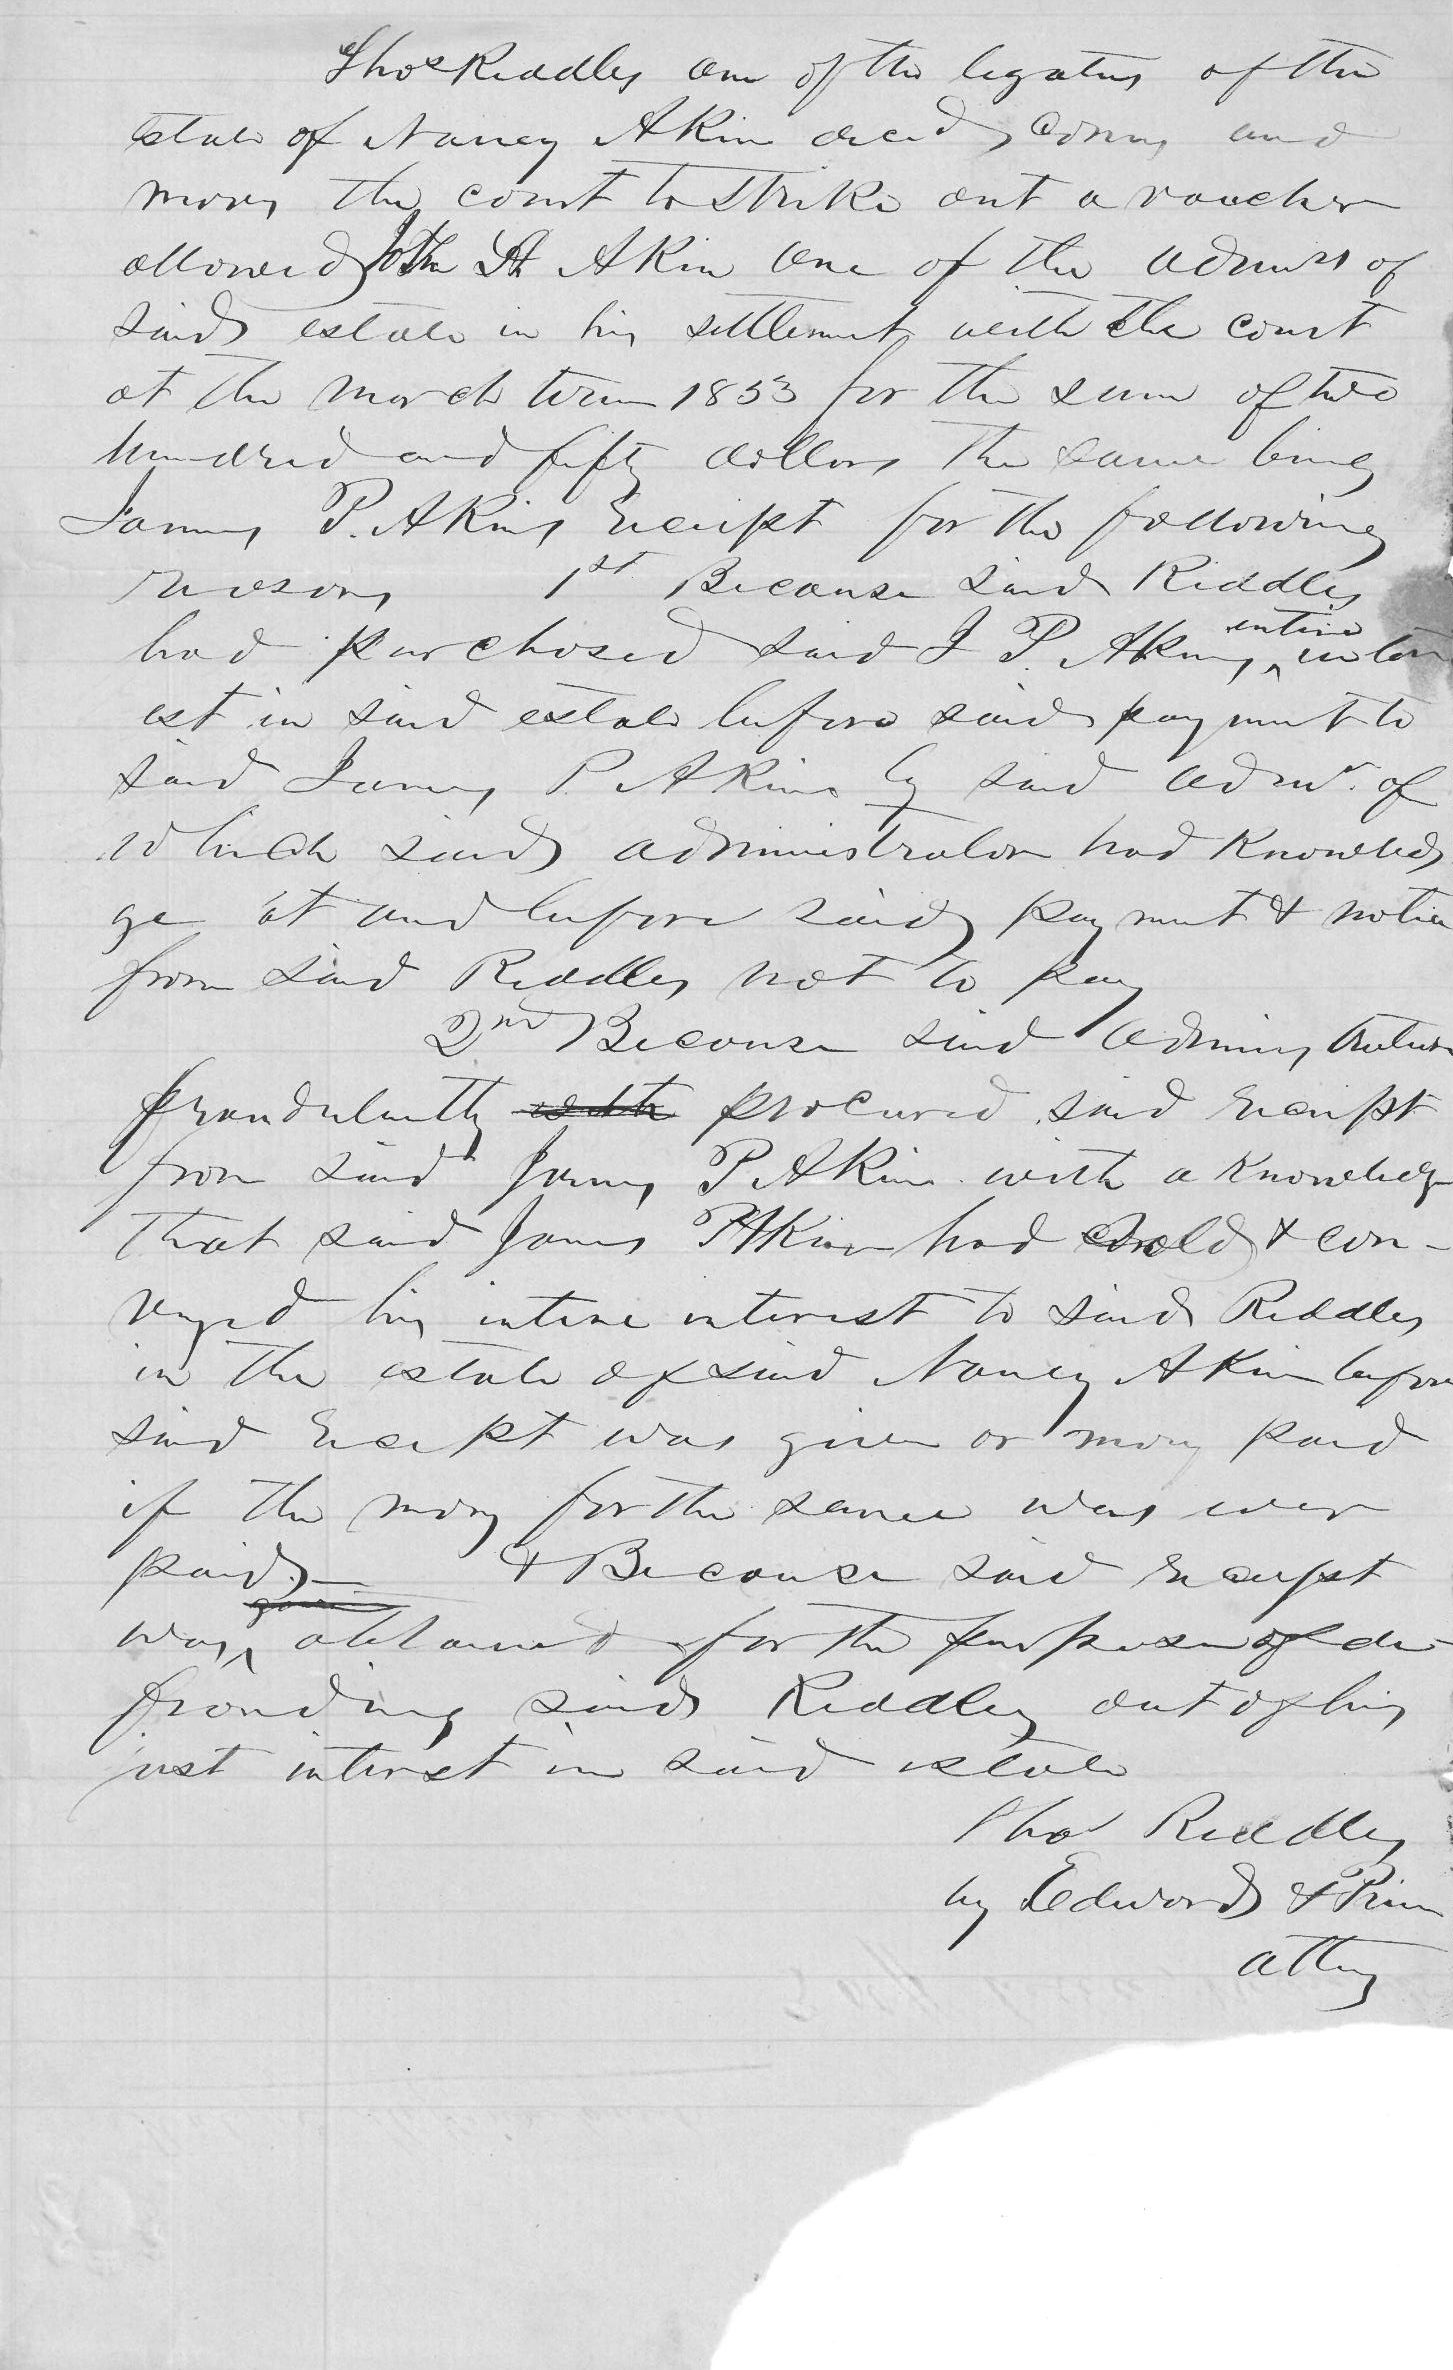 Thos Riddley one of the legatees of the
estate of Nancy Akin decd, comes and
moves the court to strike out a voucher
allowed John A Akin one of the admrs of
said estate in his settlement with the court
at the March term 1853 for the sum of two
hundred and fifty dollars the same being
James P. Akins receipt for the following
reasons 1st Because said Riddley
had purchased said J P. Akins entire inter
est in said estate before said payment to
said James P. Akin by said admr. of
which said administrator had knowled
ge at and before said payment & notice
from said Riddley not to pay
2nd Because said administrator
fraudulently procured said receipt
from said James P Akin with a knowledge
that said James P Akin had sold & con-
veyed his entire interest to said Riddley
in the estate of said Nancy Akin before
said receipt was given or money paid
if the money for the same was ever
paid — & Because said receipt
was obtained for the purpose of de-
frauding said Riddley out of his
just interest in said estate
Thos Riddley
by Edwards &
attys